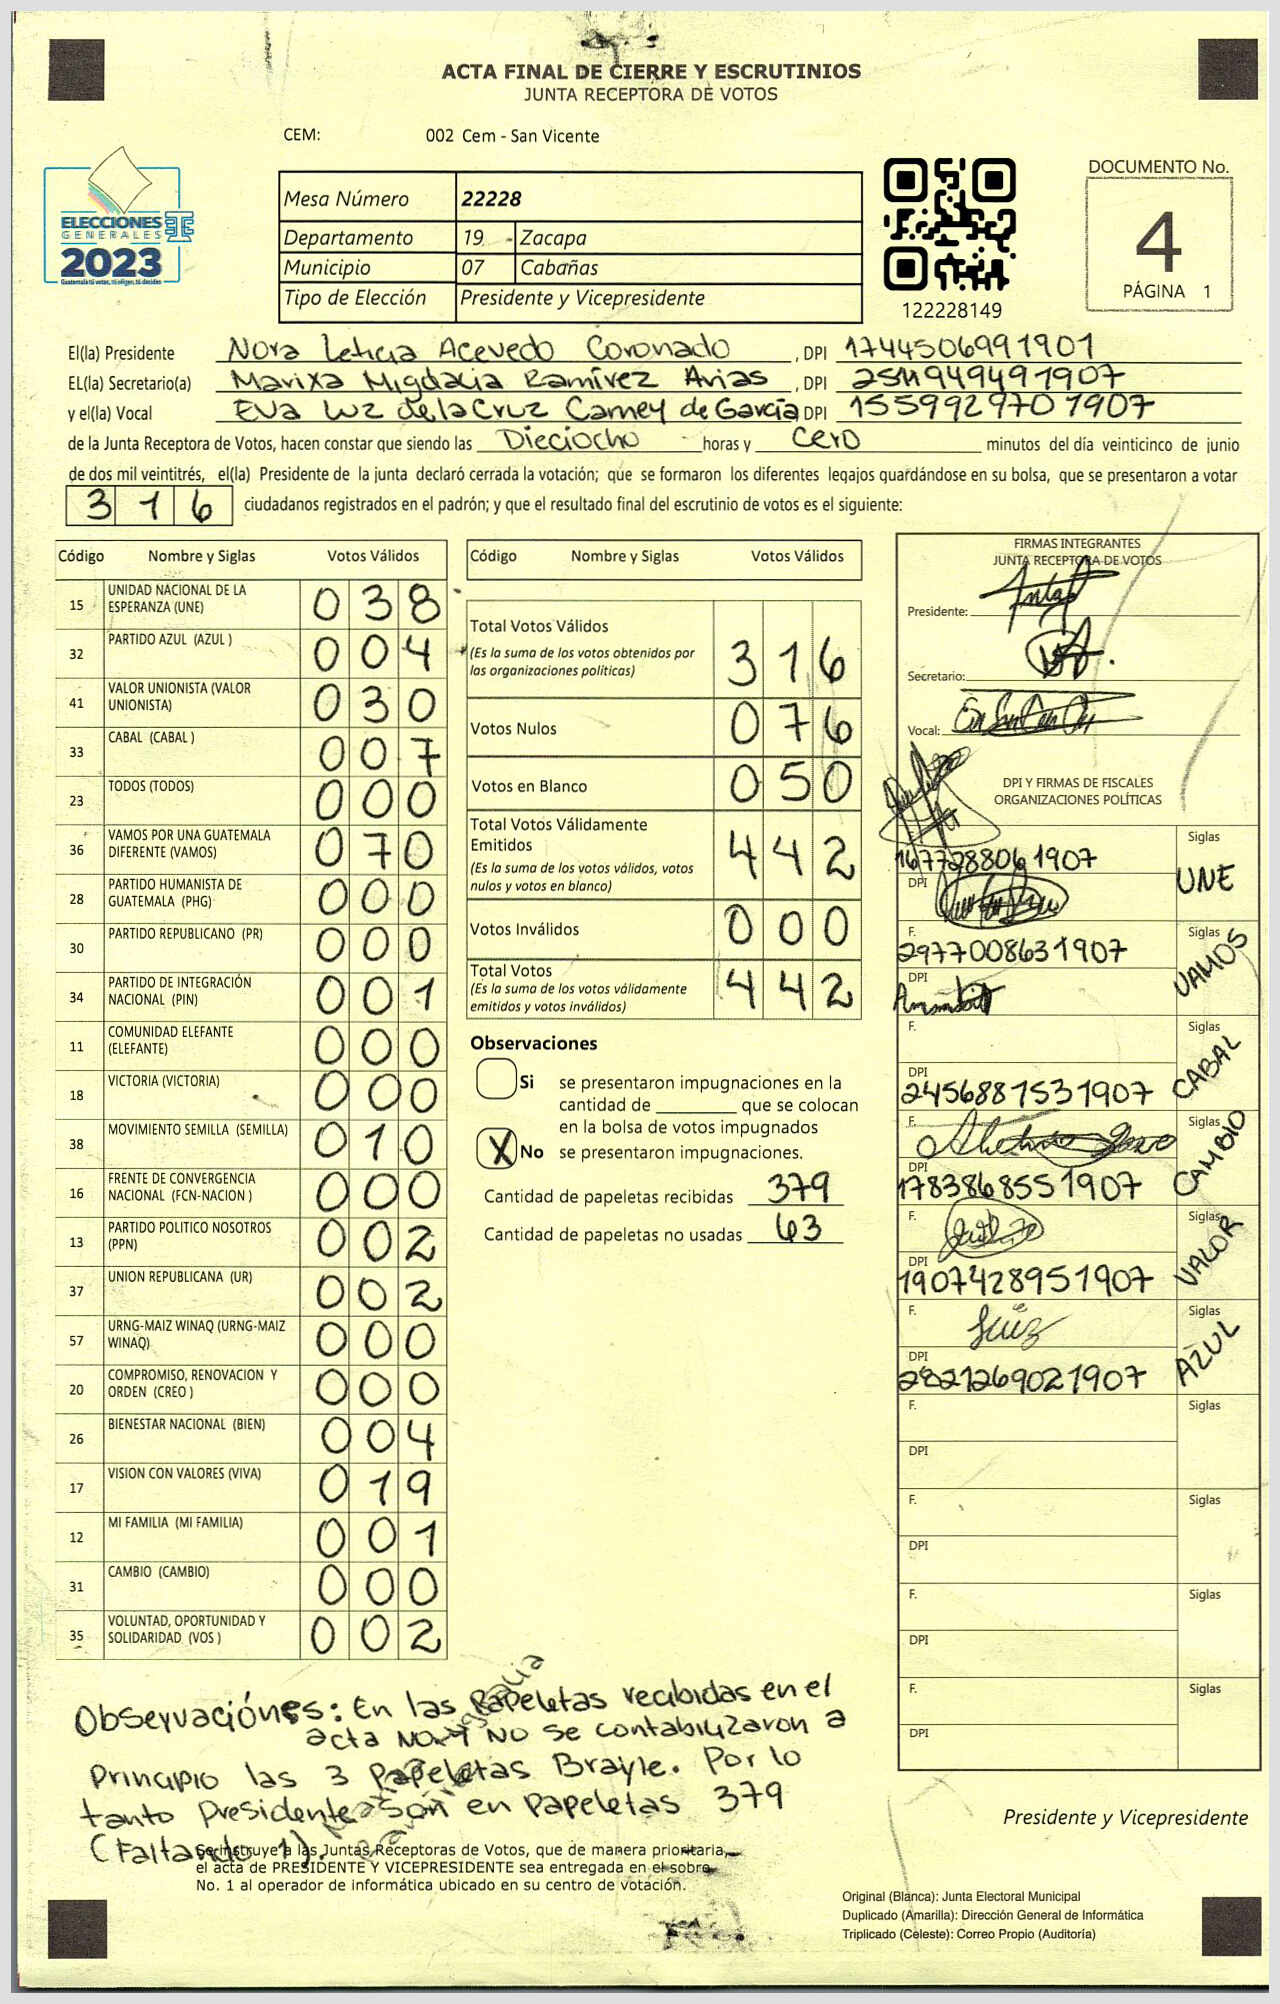 ACTA FINAL DE CIERRE Y ESCRUTINIOS
JUNTA RECEPTORA DE VOTOS
CEM: 002 Cem - San Vicente
ELECCIONES
GENERALES
2023
Guatemala tú votar, tú eliges, tú decides
Mesa Número 22228
Departamento 19 - Zacapa
Municipio 07 Cabañas
Tipo de Elección Presidente y Vicepresidente
122228149
DOCUMENTO No.
4
PÁGINA 1
El(la) Presidente Nora Leticia Acevedo Coronado , DPI 1744506991901
EL(la) Secretario(a) Marixa Migdalia Ramírez Arias , DPI
y el(la) Vocal Eva Luz de la Cruz Carney de García DPI 1559929701907
de la Junta Receptora de Votos, hacen constar que siendo las Dieciocho horas y cero minutos del día veinticinco de junio
de dos mil veintitrés, el(la) Presidente de la junta declaró cerrada la votación; que se formaron los diferentes legajos quardándose en su bolsa, que se presentaron a votar
316 ciudadanos registrados en el padrón; y que el resultado final del escrutinio de votos es el siguiente:
Código Nombre y Siglas Votos Válidos
15 UNIDAD NACIONAL DE LA ESPERANZA (UNE) 038
32 PARTIDO AZUL (AZUL ) 004
41 VALOR UNIONISTA (VALOR UNIONISTA) 030
33 CABAL (CABAL ) 007
23 TODOS (TODOS) 000
36 VAMOS POR UNA GUATEMALA DIFERENTE (VAMOS) 070
28 PARTIDO HUMANISTA DE GUATEMALA (PHG) 000
30 PARTIDO REPUBLICANO (PR) 000
34 PARTIDO DE INTEGRACIÓN NACIONAL (PIN) 001
11 COMUNIDAD ELEFANTE (ELEFANTE) 000
18 VICTORIA (VICTORIA) 000
38 MOVIMIENTO SEMILLA (SEMILLA) 010
16 FRENTE DE CONVERGENCIA NACIONAL (FCN-NACION ) 000
13 PARTIDO POLITICO NOSOTROS (PPN) 002
37 UNION REPUBLICANA (UR) 002
57 URNG-MAIZ WINAQ (URNG-MAIZ WINAQ) 000
20 COMPROMISO, RENOVACION Y ORDEN (CREO ) 000
26 BIENESTAR NACIONAL (BIEN) 004
17 VISION CON VALORES (VIVA) 019
12 MI FAMILIA (MI FAMILIA) 001
31 CAMBIO (CAMBIO) 000
35 VOLUNTAD, OPORTUNIDAD Y SOLIDARIDAD (VOS ) 002
Código Nombre y Siglas Votos Válidos
Total Votos Válidos 316
(Es la suma de los votos obtenidos por
las organizaciones políticas)
Votos Nulos 076
Votos en Blanco 050
Total Votos Válidamente
Emitidos 442
(Es la suma de los votos válidos, votos
nulos y votos en blanco)
Votos Inválidos 000
Total Votos 442
(Es la suma de los votos válidamente
emitidos y votos inválidos)
Observaciones
Si se presentaron impugnaciones en la
cantidad de ________ que se colocan
en la bolsa de votos impugnados
X No se presentaron impugnaciones.
Cantidad de papeletas recibidas 379
Cantidad de papeletas no usadas 63
FIRMAS INTEGRANTES
JUNTA RECEPTORA DE VOTOS
Presidente:
Secretario:
Vocal:
DPI Y FIRMAS DE FISCALES
ORGANIZACIONES POLÍTICAS
Siglas
1677288061907 UNE
DPI
F. Siglas
2977008631907 VAMOS
DPI
F. Siglas
DPI CABAL
2456881531907
F. Siglas
DPI CAMBIO
1783868551907
F. Siglas
DPI VALOR
1907428951907
F. Siglas
DPI AZUL
2821269021907
F. Siglas
DPI
F. Siglas
DPI
F. Siglas
DPI
F. Siglas
DPI
Observaciónes: En las Papeletas recibidas en el
acta No. 4 NO se contabilizaron a
Principio las 3 Papeletas Brayle. Por lo
tanto Presidente son en Papeletas 379
(Faltando 1).
Se instruye a las Juntas Receptoras de Votos, que de manera prioritaria,
el acta de PRESIDENTE Y VICEPRESIDENTE sea entregada en el sobre
No. 1 al operador de informática ubicado en su centro de votación.
Presidente y Vicepresidente
Original (Blanca): Junta Electoral Municipal
Duplicado (Amarilla): Dirección General de Informática
Triplicado (Celeste): Correo Propio (Auditoría)